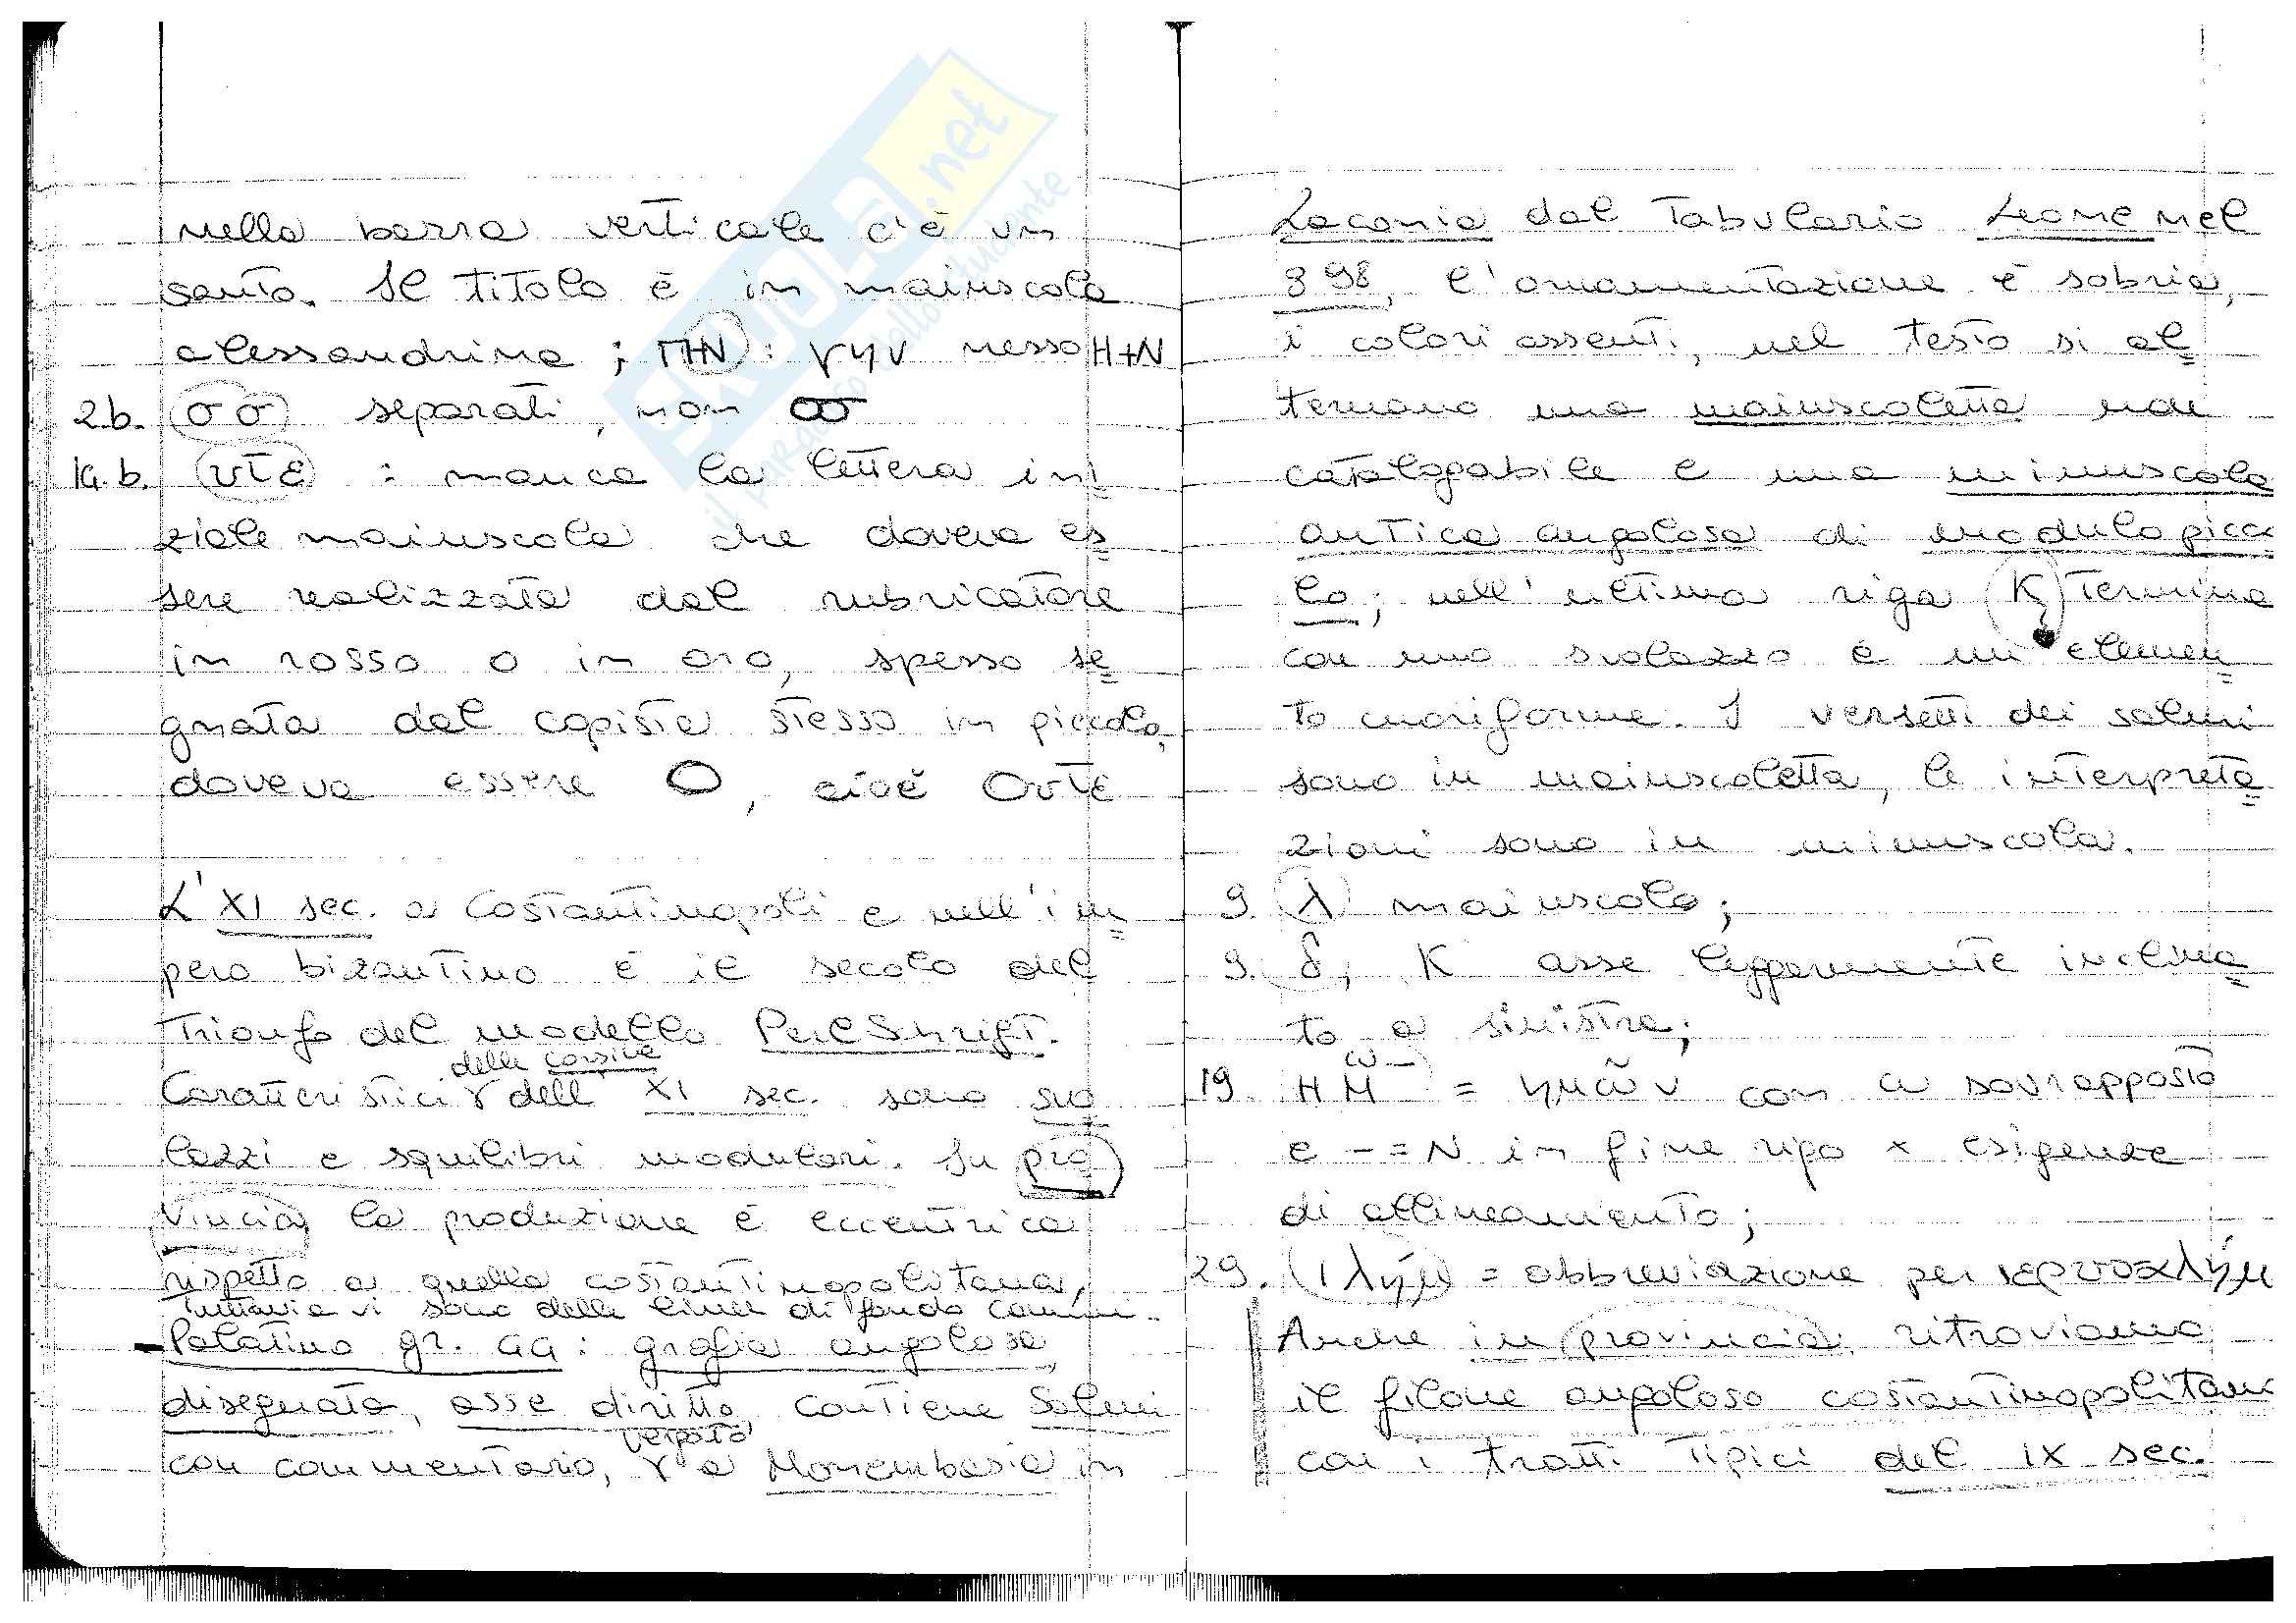 nella barra verticale c'è un
santo. Il titolo è in maiuscola
alessandrina ; ΠHN : γην nesso H+N
2.b. σσ separati, non σσ
14.b. υτε : manca la lettera ini
ziale maiuscola che doveva es
sere realizzata dal rubricatore
in rosso o in oro, spesso se
gnata dal copista stesso in piccolo,
doveva essere O, cioè Oυτε
L'XI sec. a Costantinopoli e nell'im
pero bizantino è il secolo del
trionfo del modello PerlSchrift.
delle corsive
Caratteristici γ dell' XI sec. sono svo
lazzi e squilibri modulari. In pro
vincia la produzione è eccentrica
rispetto a quella costantinopolitana,
tuttavia vi sono delle linee di fondo comuni.
- Palatino gr. 44: grafia angolosa,
disegnata, asse diritto, contiene Salmi
vergato
con commentario, γ a Monembasia in
Laconia dal Tabulario Leone nel
898, l'ornamentazione è sobria,
i colori assenti, nel testo si al
ternano una maiuscoletta non
catalogabile e una minuscola
antica angolosa di modulo picco
lo; nell'ultima riga K termina
con uno svolazzo e un elemen
to cuoriforme. I versetti dei salmi
sono in maiuscoletta, le interpreta
zioni sono in minuscola.
9. λ maiuscolo;
9. δ, K asse leggermente inclina
to a sinistra;
ω –
19. H M = ημῶν con ω sovrapposto
e – = N in fine rigo x esigenze
di allineamento;
29. ιλήμ = abbreviazione per ιερουσαλήμ
Anche in provincia ritroviamo
il filone angoloso costantinopolitano
con i tratti tipici del IX sec.
SKUOLA.net
il paradiso dello studente